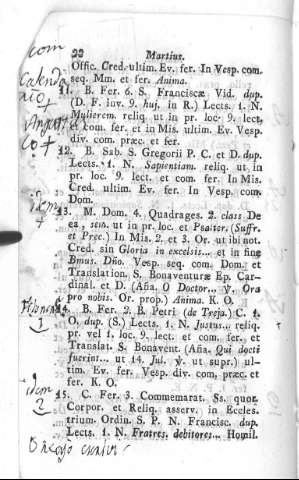 22 Martius.
Offic. Cred. ultim. Ev. fer. In Vesp. com.
seq. Mm. et fer. Anima.
11. B. Fer. 6. S. Franciscæ Vid. dup.
(D. F. inv. 9. huj. in R.) Lects. 1. N.
Mulierem. reliq. ut in pr. loc. 9. lect.
et com. fer. et in Mis. ultim. Ev. Vesp.
div. com. præc. et fer.
12. B. Sab. S. Gregorii P. C. et D. dup.
Lects. 1. N. Sapientiam. reliq. ut in
pr. loc. 9. lect. et com. fer. In Mis.
Cred. ultim. Ev. fer. In Vesp. com.
Dom.
13. M. Dom. 4. Quadrages. 2. class De
ea, sem. ut in pr. loc. et Psalter. (Suffr.
et Prec.) In Mis. 2. et 3. Or. ut ibi not.
Cred. sin Gloria in excelsis... et in fine
Bmus. Dño. Vesp. seq. com. Dom. et
Translation. S. Bonaventuræ Ep. Car-
dinal. et D. (Aña. O Doctor... ℣. Ora
pro nobis. Or. prop.) Anima. K. O.
14. B. Fer. 2. B. Petri (de Treja.) C. 1.
O. dup. (S.) Lects. 1. N. Justus... reliq.
pr. vel 1. loc. 9. lect. et com. fer. et
Translat. S. Bonavent. (Aña. Qui docti
fuerint... ut 14. Jul. ℣. ut supr.) ul-
tim. Ev. fer. Vesp. div. com. præc. et
fer. K. O.
15. C. Fer. 3. Commemorat. Ss. quor.
Corpor. et Reliq. asserv. in Eccles.
trium. Ordin. S. P. N. Francisc. dup.
Lects. 1. N. Fratres, debitores... Homil.
com
Calenda
idem
idem
2